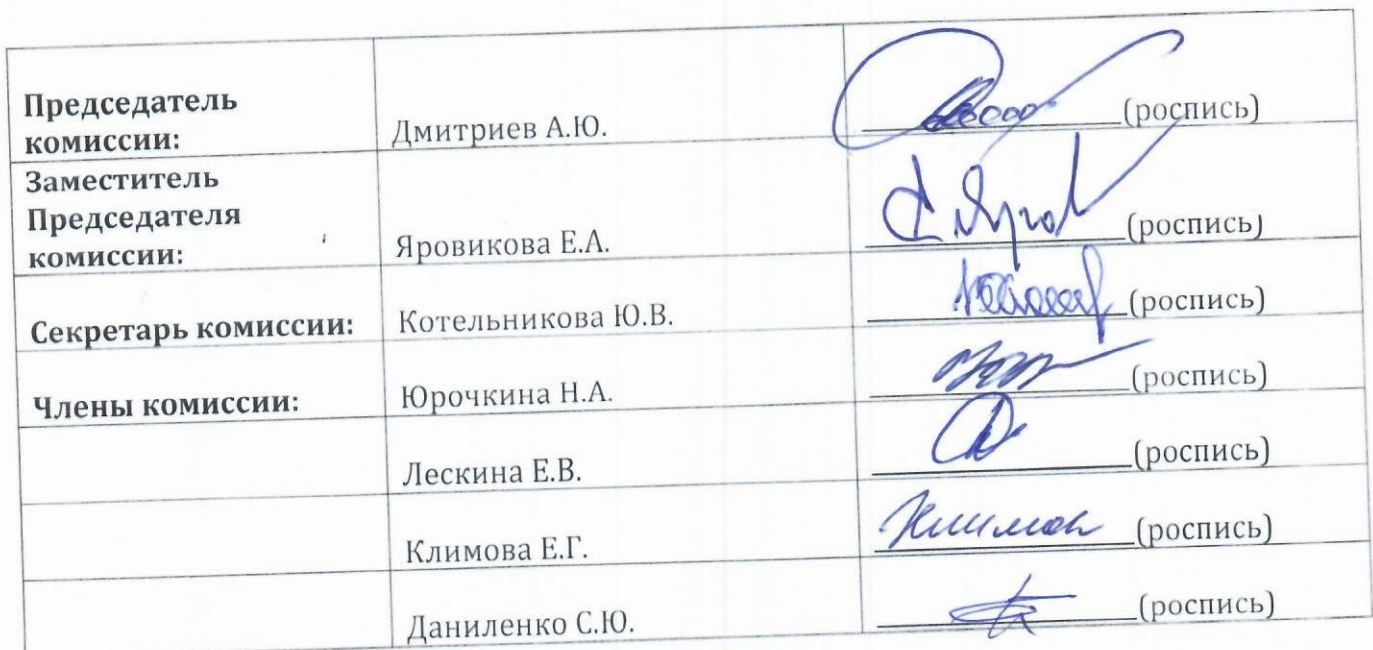 Председатель
комиссии:
Дмитриев А.Ю.
(роспись)
Заместитель
Председателя
комиссии:
Яровикова Е.А.
(роспись)
Секретарь комиссии:
Котельникова Ю.В.
(роспись)
Члены комиссии:
Юрочкина Н.А.
(роспись)
Лескина Е.В.
(роспись)
Климова Е.Г.
(роспись)
Даниленко С.Ю.
(роспись)